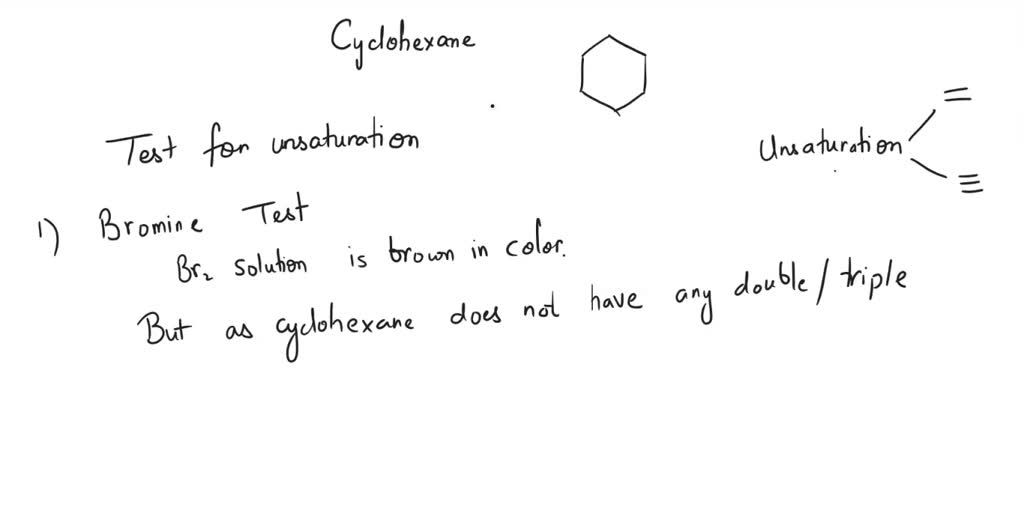 Cyclohexane
Test for unsaturation
Unsaturation = ≡
1) Bromine Test
Br₂ solution is brown in color.
But as cyclohexane does not have any double / triple